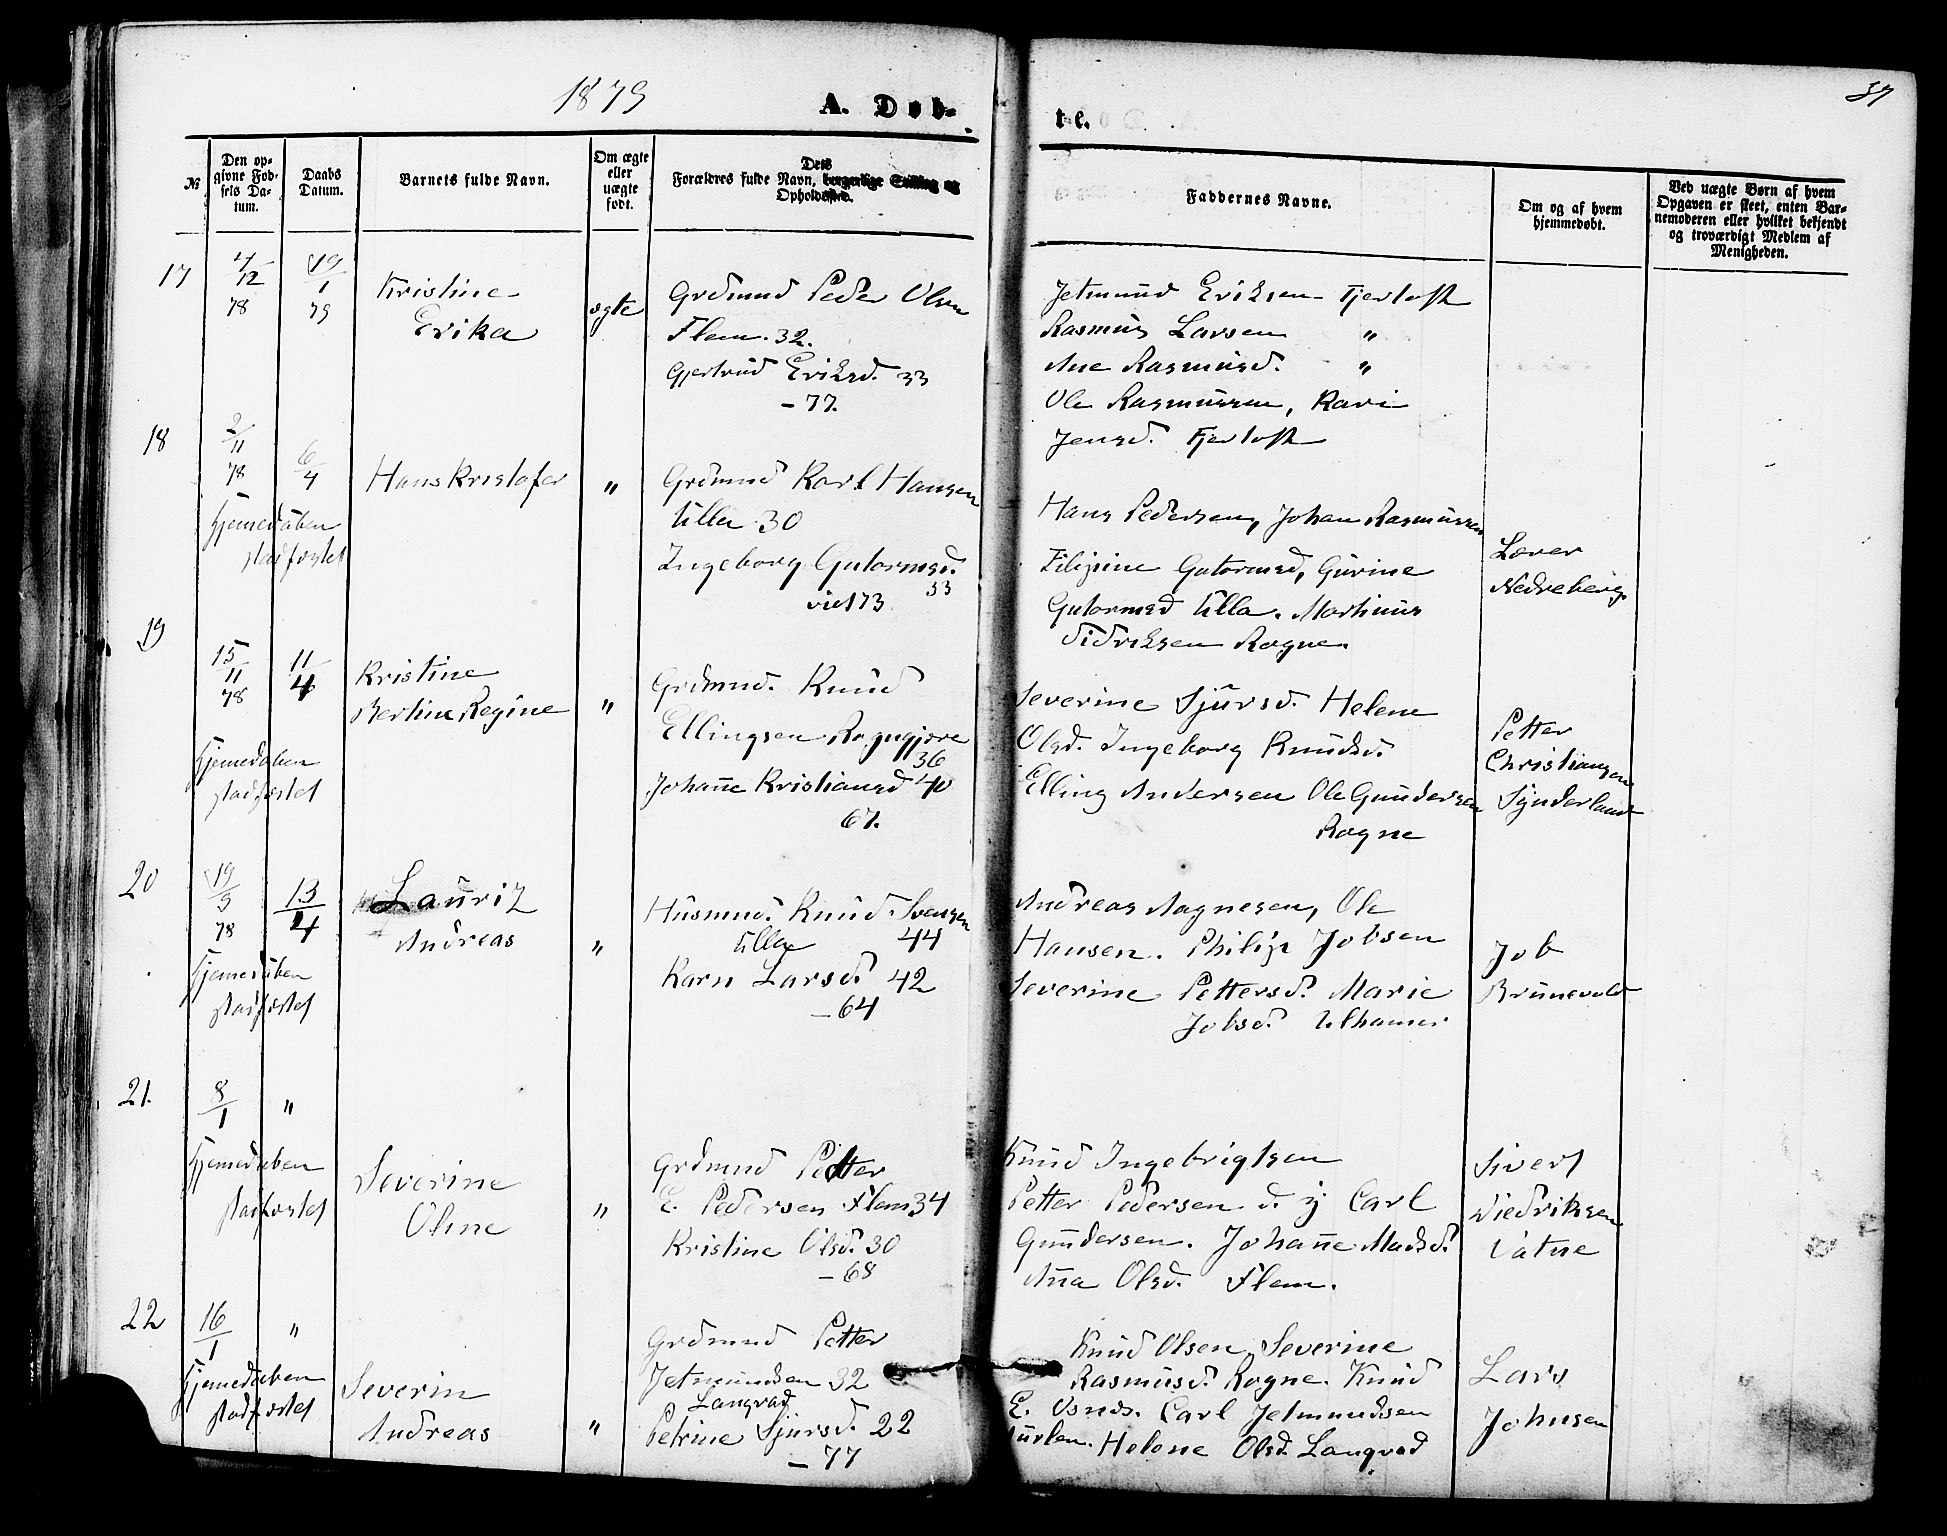 1879
A. Døb-
te.
37
№
Den op-
givne Fød-
sels Da-
tum.
Daabs
Datum.
Barnets fulde Navn.
Om ægte
eller
uægte
født.
Dets
Forældres fulde Navn, borgerlige Stilling og
Opholdssted.
Faddernes Navne.
Om og af hvem
hjemmedøbt.
Ved uægte Børn af hvem
Opgaven er skeet, enten Bar-
nemoderen eller hvilket bekjendt
og troværdigt Medlem af
Menigheden.
17
4/12
78
19/1
79
Kristine
Erika
ægte
Grdmnd Peder Olsen
Flem. 32.
Gjertrud Eriksd. 33
- 77.
Jetmund Eriksen Fjertoft
Rasmus Larsen "
Ane Rasmusd. "
Ole Rasmussen, Kari
Jensd. Fjertoft
18
2/11
78
6/4
Hjemedåben
stadfæstet
Hans Kristofer
"
Grdmnd Karl Hansen
Ulla 30
Ingeborg Gutormsd.
viet 73 33
Hans Pedersen, Johan Rasmussen
Filipine Gutormsd, Gurine
Gutormsd Ulla. Martinus
Didriksen Rogne.
Lærer
Nedreberg.
19
15/11
78
11/4
Hjemedåben
stadfæstet
Kristine
Bertine Regine
"
Grdmnd. Knud
Ellingsen Rogngjære
36
Johanne Kristiansd 40
67.
Severine Sjursd. Helene
Olsd. Ingeborg Knudsd.
Elling Andersen Ole Gundersen
Rogne
Petter
Christiansen
Synderland
20
19/3
78
13/4
Hjemedåben
stadfæstet
Lauritz
Andreas
"
Husmnd. Knud Svensen
Ulla 44
Karn Larsd. 42
- 64
Andreas Aagnesen, Ole
Hansen. Philip Jobsen
Severine Pettersd. Marie
Jobsd. Ulhamer
Job
Brunevold
21.
8/1
"
Hjemedåben
stadfæstet
Severine
Oline
"
Grdmnd Petter
E. Pedersen Flem 34
Kristine Olsd. 30
- 68
Knud Ingebrigtsen
Petter Pedersen d. y Carl
Gundersen. Johanne Madsd.
Anna Olsd. Flem.
Sivert
Diedriksen
Vatne
22
16/1
"
Hjemedåben
stadfæstet
Severin
Andreas
"
Grdmnd Petter
Jetmundsen 32
Langvad
Petrine Sjursd. 22
- 77
Knud Olsen, Severine
Rasmusd. Rogne. Knud
E. Osnes. Carl Jetmundsen
Helene Olsd. Langvad
Lars
Johnsen